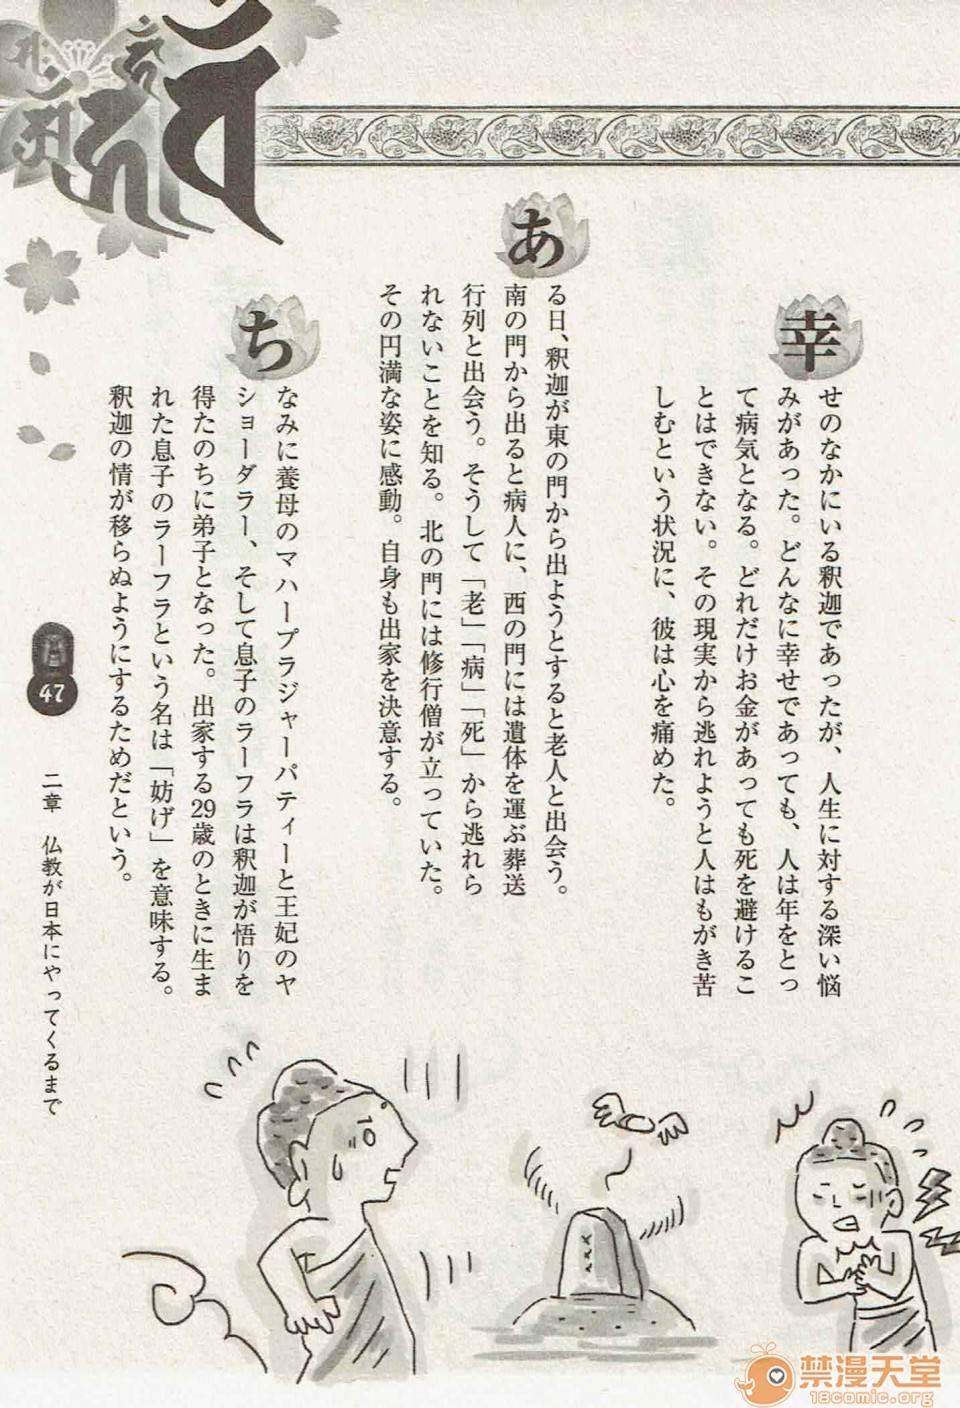 幸
せのなかにいる釈迦であったが、人生に対する深い悩
みがあった。どんなに幸せであっても、人は年をとっ
て病気となる。どれだけお金があっても死を避けるこ
とはできない。その現実から逃れようと人はもがき苦
しむという状況に、彼は心を痛めた。
あ
る日、釈迦が東の門から出ようとすると老人と出会う。
南の門から出ると病人に、西の門には遺体を運ぶ葬送
行列と出会う。そうして「老」「病」「死」から逃れら
れないことを知る。北の門には修行僧が立っていた。
その円満な姿に感動。自身も出家を決意する。
ち
なみに養母のマハープラジャーパティーと王妃のヤ
ショーダラー、そして息子のラーフラは釈迦が悟りを
得たのちに弟子となった。出家する29歳のときに生ま
れた息子のラーフラという名は「妨げ」を意味する。
釈迦の情が移らぬようにするためだという。
47
二章 仏教が日本にやってくるまで
禁漫天堂
18comic.org